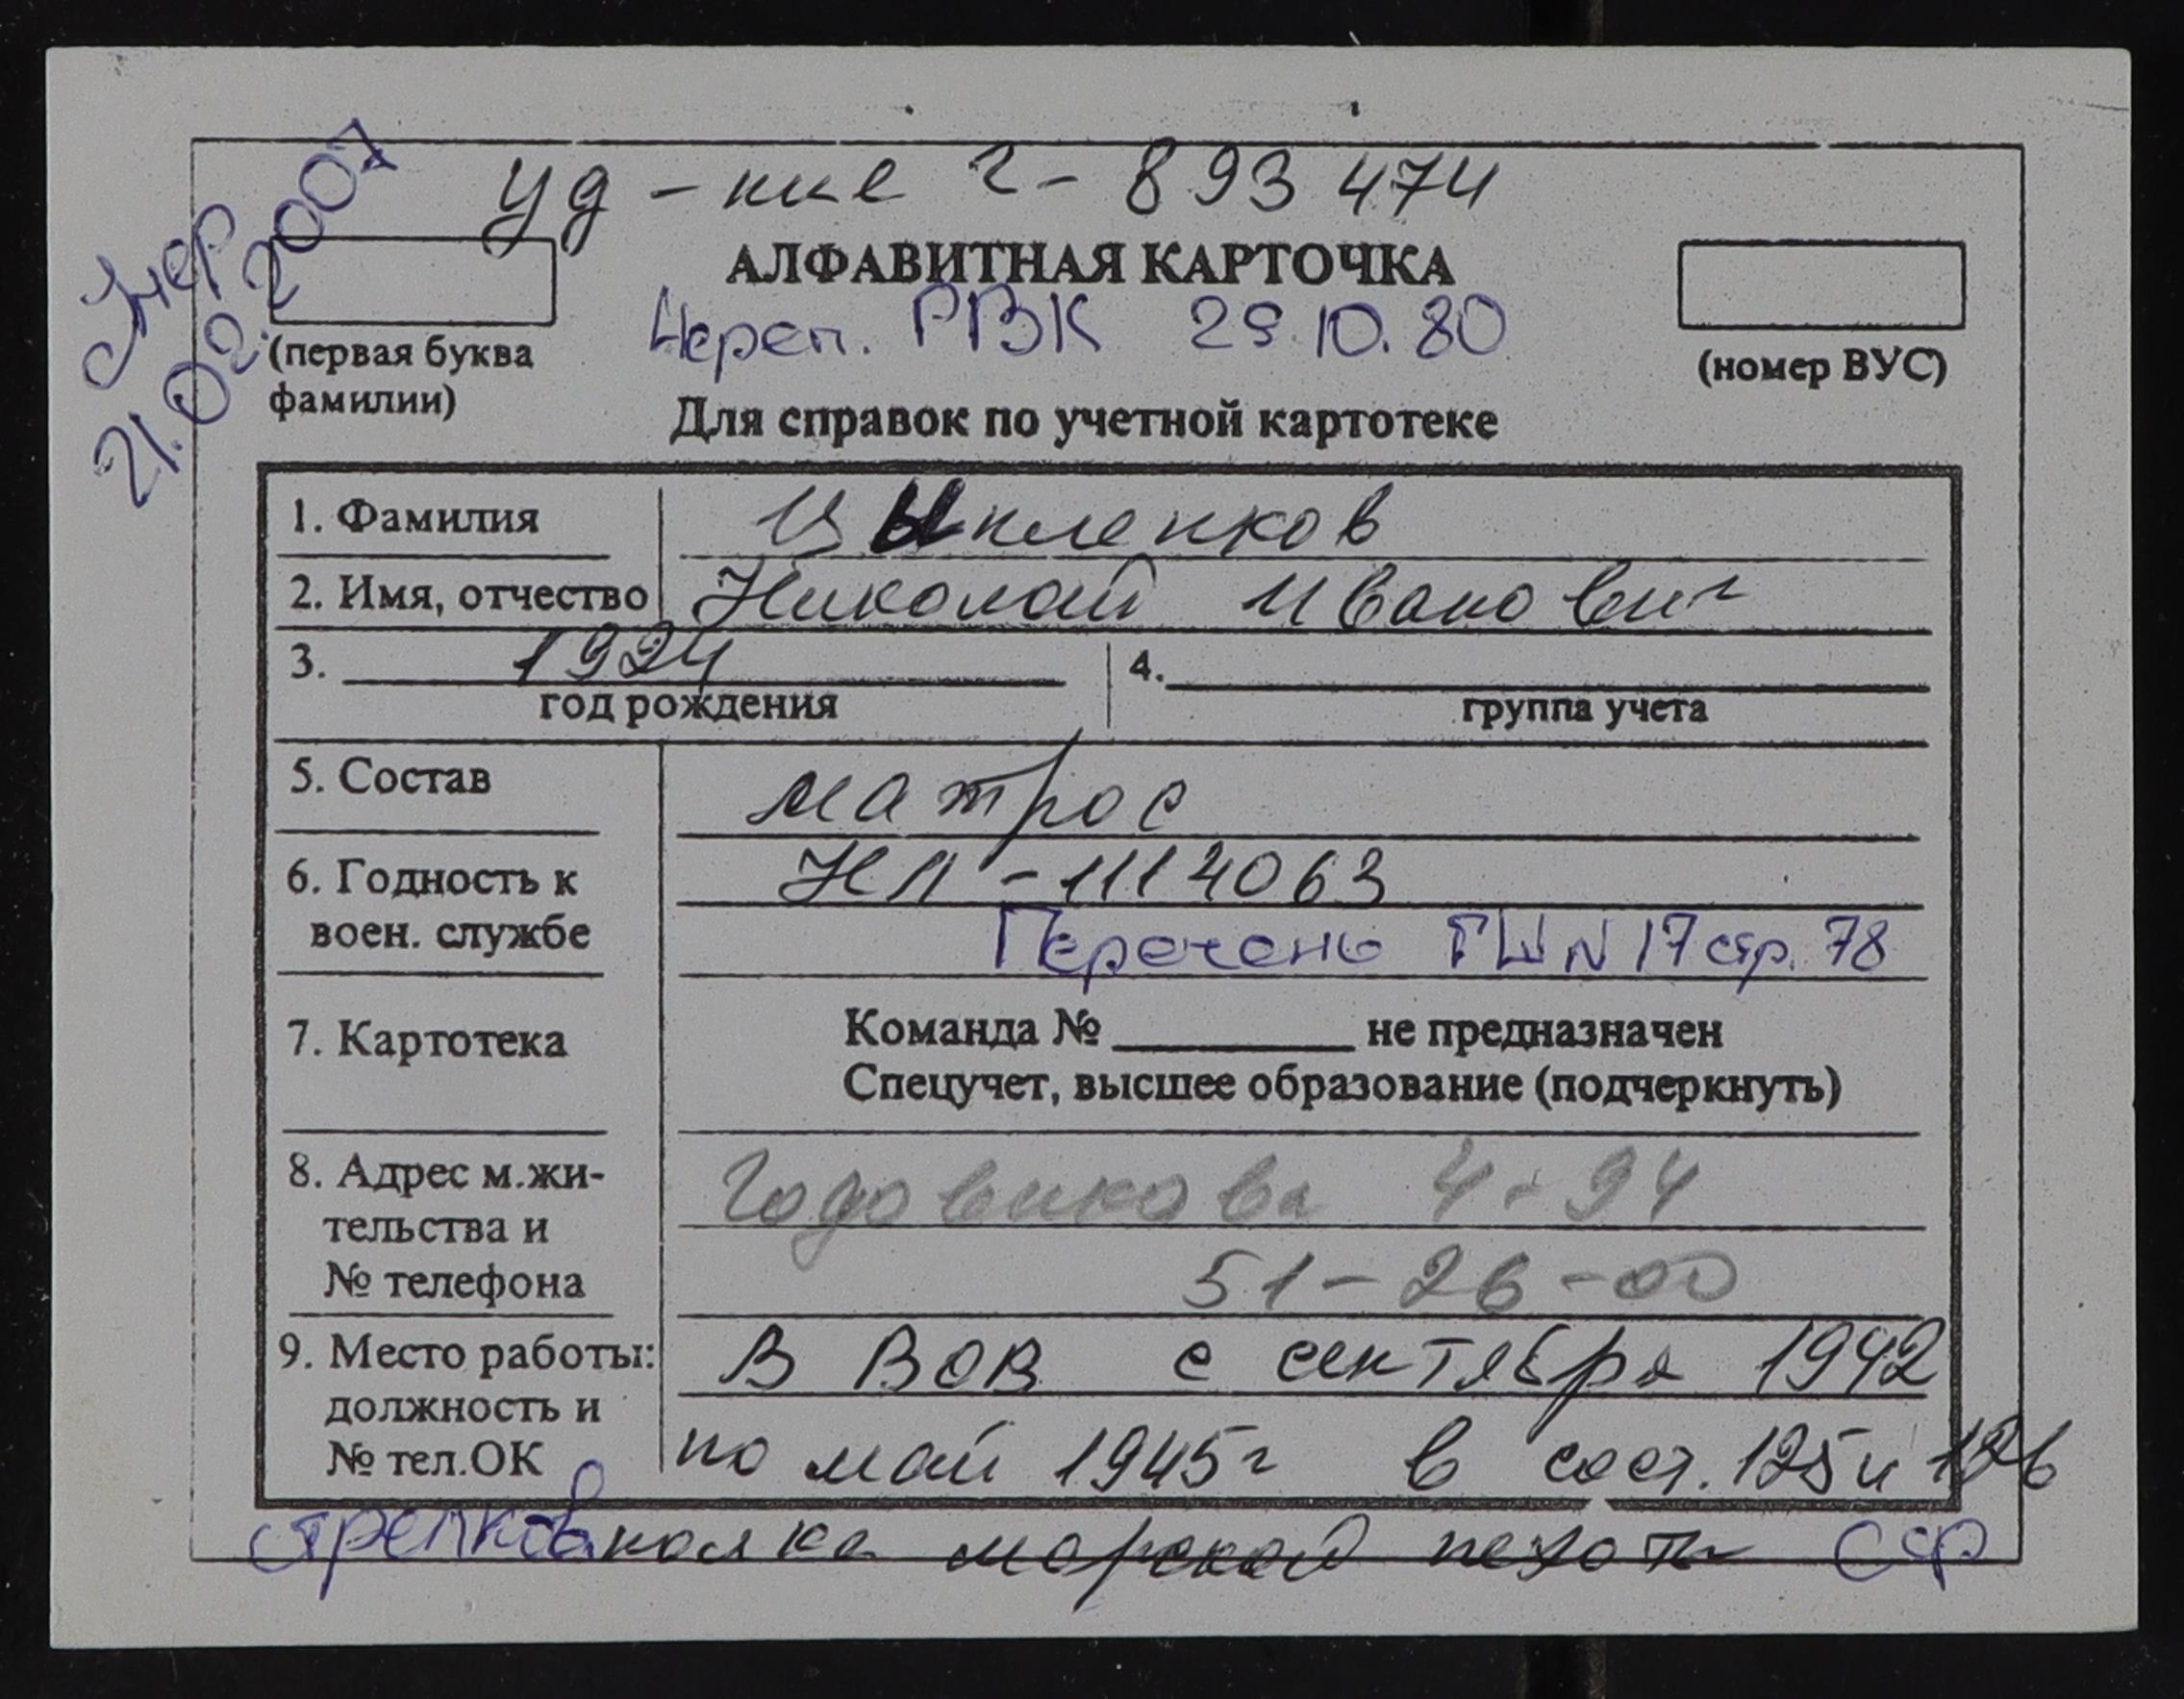 Умер
21.02.2007
Уд-ние Г-893474
АЛФАВИТНАЯ КАРТОЧКА
Череп. РВК 29.10.80
(первая буква
фамилии)
(номер ВУС)
Для справок по учетной картотеке
1. Фамилия Цыпленков
2. Имя, отчество Николай Иванович
3. 1924 4.
год рождения группа учета
5. Состав матрос
6. Годность к НЛ-1114063
воен. службе Перечень ГШ N 17 стр. 78
7. Картотека Команда № ________ не предназначен
Спецучет, высшее образование (подчеркнуть)
8. Адрес м.жи- Годовикова 4-94
тельства и
№ телефона 51-26-00
9. Место работы: В ВОВ с сентября 1942
должность и
№ тел.ОК по май 1945г в сост. 125 и 126
стрелков полка морской пехоты СФ